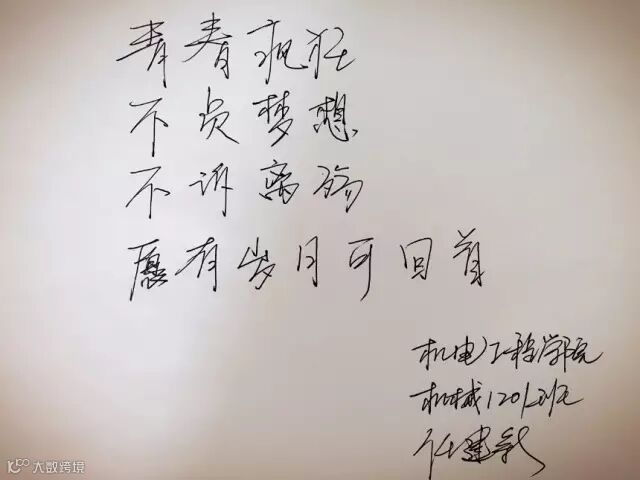 青春疯狂
不负梦想
不诉离殇
愿有岁月可回首
机电工程学院
机械1201班
任建新
大数跨境